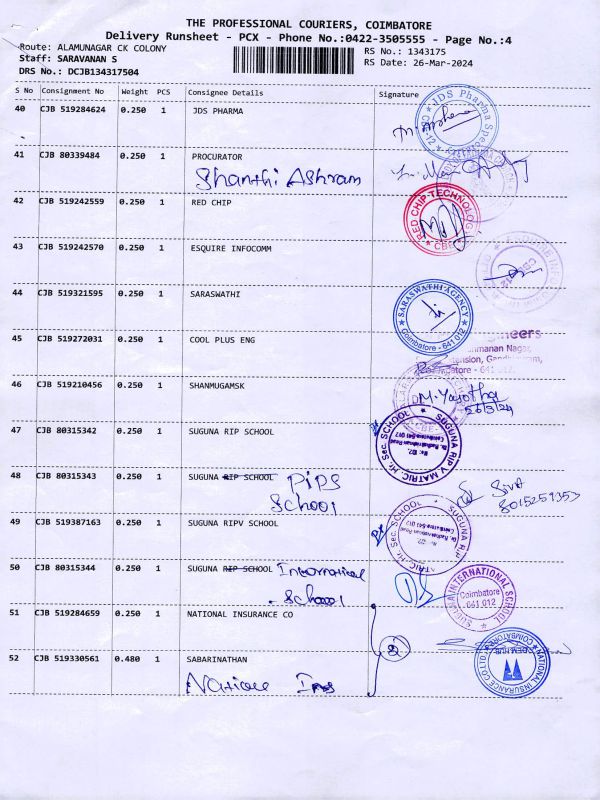 THE PROFESSIONAL COURIERS, COIMBATORE
Delivery Runsheet - PCX - Phone No.:0422-3505555 - Page No.:4
Route: ALAMUNAGAR CK COLONY
RS No.: 1343175
Staff: SARAVANAN S
RS Date: 26-Mar-2024
DRS No.: DCJB134317504
S No Consignment No Weight PCS Consignee Details Signature
40 CJB 519284624 0.250 1 JDS PHARMA
JDS Pharma
41 CJB 80339484 0.250 1 PROCURATOR
Shanthi Ashram
42 CJB 519242559 0.250 1 RED CHIP
RED CHIP TECHNOLOGY
CBE
43 CJB 519242570 0.250 1 ESQUIRE INFOCOMM
44 CJB 519321595 0.250 1 SARASWATHI
SARASWATHI AGENCY
Coimbatore - 641 012
45 CJB 519272031 0.250 1 COOL PLUS ENG
46 CJB 519210456 0.250 1 SHANMUGAMSK
26/3/24
47 CJB 80315342 0.250 1 SUGUNA RIP SCHOOL
SUGUNA RIP V MATRIC. Hr. Sec. SCHOOL
48 CJB 80315343 0.250 1 SUGUNA RIP SCHOOL PIPS
School
Siva
8015259353
49 CJB 519387163 0.250 1 SUGUNA RIPV SCHOOL
50 CJB 80315344 0.250 1 SUGUNA RIP SCHOOL International
School
SUGUNA INTERNATIONAL SCHOOL
Coimbatore
641 012
51 CJB 519284659 0.250 1 NATIONAL INSURANCE CO
52 CJB 519330561 0.480 1 SABARINATHAN
NATIONAL INSURANCE CO LTD
COIMBATORE